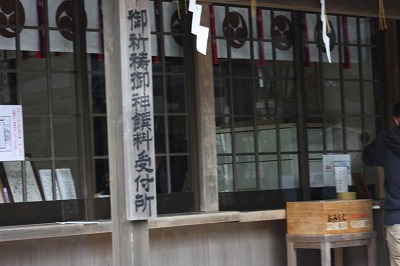 御祈祷御神饌料受付所